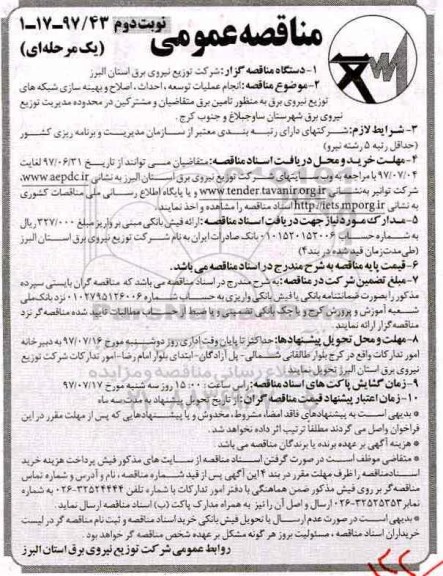 نوبت دوم
۱-۱۷-۹۷/۴۳
مناقصه عمومی
(یک مرحله‌ای)
۱- دستگاه مناقصه گزار: شرکت توزیع نیروی برق استان البرز
۲- موضوع مناقصه: انجام عملیات توسعه، احداث، اصلاح و بهینه سازی شبکه های
توزیع نیروی برق به منظور تامین برق متقاضیان و مشترکین در محدوده مدیریت توزیع
نیروی برق شهرستان ساوجبلاغ و جنوب کرج.
۳- شرایط لازم: شرکتهای دارای رتبه بندی معتبر از سازمان مدیریت و برنامه ریزی کشور
(حداقل رتبه ۵ رشته نیرو)
۴- مهلت خرید و محل دریافت اسناد مناقصه: متقاضیان می توانند از تاریخ ۹۷/۰۶/۳۱ لغایت
۹۷/۰۷/۰۴ با مراجعه به یکی از سایتهای شرکت توزیع نیروی برق استان البرز به نشانی www.aepdc.ir،
شرکت توانیر به نشانی www.tender.tavanir.org.ir و یا پایگاه اطلاع رسانی ملی مناقصات کشوری
به نشانی http://iets.mporg.ir اسناد مناقصه را مشاهده و اخذ نمایند.
۵- مدارک مورد نیاز جهت دریافت اسناد مناقصه: ارائه فیش بانکی مبنی بر واریز مبلغ ۳۲۷/۰۰۰ ریال
به شماره حساب ۰۱۰۱۵۲۰۱۵۲۰۰۶ بانک صادرات ایران به نام شرکت توزیع نیروی برق استان البرز
(طی مدت زمان قید شده در بند ۴)
۶- قیمت پایه مناقصه به شرح مندرج در اسناد مناقصه می باشد.
۷- مبلغ تضمین شرکت در مناقصه: به شرح مندرج در اسناد مناقصه می باشد که مناقصه گران بایستی سپرده
مذکور را بصورت ضمانتنامه بانکی یا فیش بانکی واریزی به حساب شماره ۰۱۰۲۷۹۵۱۲۶۰۰۶ نزد بانک ملی
شعبه آموزش و پرورش کرج و یا چک بانکی تضمینی و یا ضبط از حساب مطالبات تایید شده مناقصه گر نزد
مناقصه گزار ارائه نمایند.
۸- مهلت و محل تحویل پیشنهادها: حداکثر تا پایان وقت اداری روز دوشنبه مورخ ۹۷/۰۷/۱۶ به دبیرخانه
امور تدارکات واقع در کرج بلوار طالقانی شمالی- پل آزادگان- ابتدای بلوار امام رضا- امور تدارکات شرکت توزیع
نیروی برق استان البرز تحویل نمایند.
۹- زمان گشایش پاکت های اسناد مناقصه: راس ساعت ۱۵:۰۰ روز سه شنبه مورخ ۹۷/۰۷/۱۷
۱۰- زمان اعتبار پیشنهاد قیمت مناقصه گران: از تاریخ تحویل پیشنهاد به مدت سه ماه
* بدیهی است به پیشنهادهای فاقد امضاء، مشروط، مخدوش و یا پیشنهادهایی که پس از مهلت مقرر در این
فراخوان واصل می گردند مطلقا ترتیب اثر داده نخواهد شد.
* هزینه آگهی بر عهده برنده یا برندگان مناقصه می باشد
* متقاضی موظف است در صورت گرفتن اسناد مناقصه از سایت های مذکور فیش پرداخت هزینه خرید
اسناد مناقصه را ظرف مهلت مقرر در بند ۴ این آگهی پس از قید شماره مناقصه، نام و آدرس و شماره تماس
مناقصه گر بر روی فیش مذکور ضمن هماهنگی با دفتر امور تدارکات با شماره تلفن ۳۲۵۲۴۴۴۴-۰۲۶ به شماره
نمابر ۳۲۵۲۵۳۵۳-۰۲۶ ارسال و اصل آن را نیز به همراه مدارک پاکت (ب) اسناد مناقصه ارسال نماید.
* بدیهی است در صورت عدم ارسال یا تحویل فیش بانکی خرید اسناد مناقصه و ثبت نام مناقصه گر در لیست
خریداران اسناد مناقصه، مسئولیت بروز هر گونه مشکل بر عهده شخص مناقصه گر خواهد بود
روابط عمومی شرکت توزیع نیروی برق استان البرز